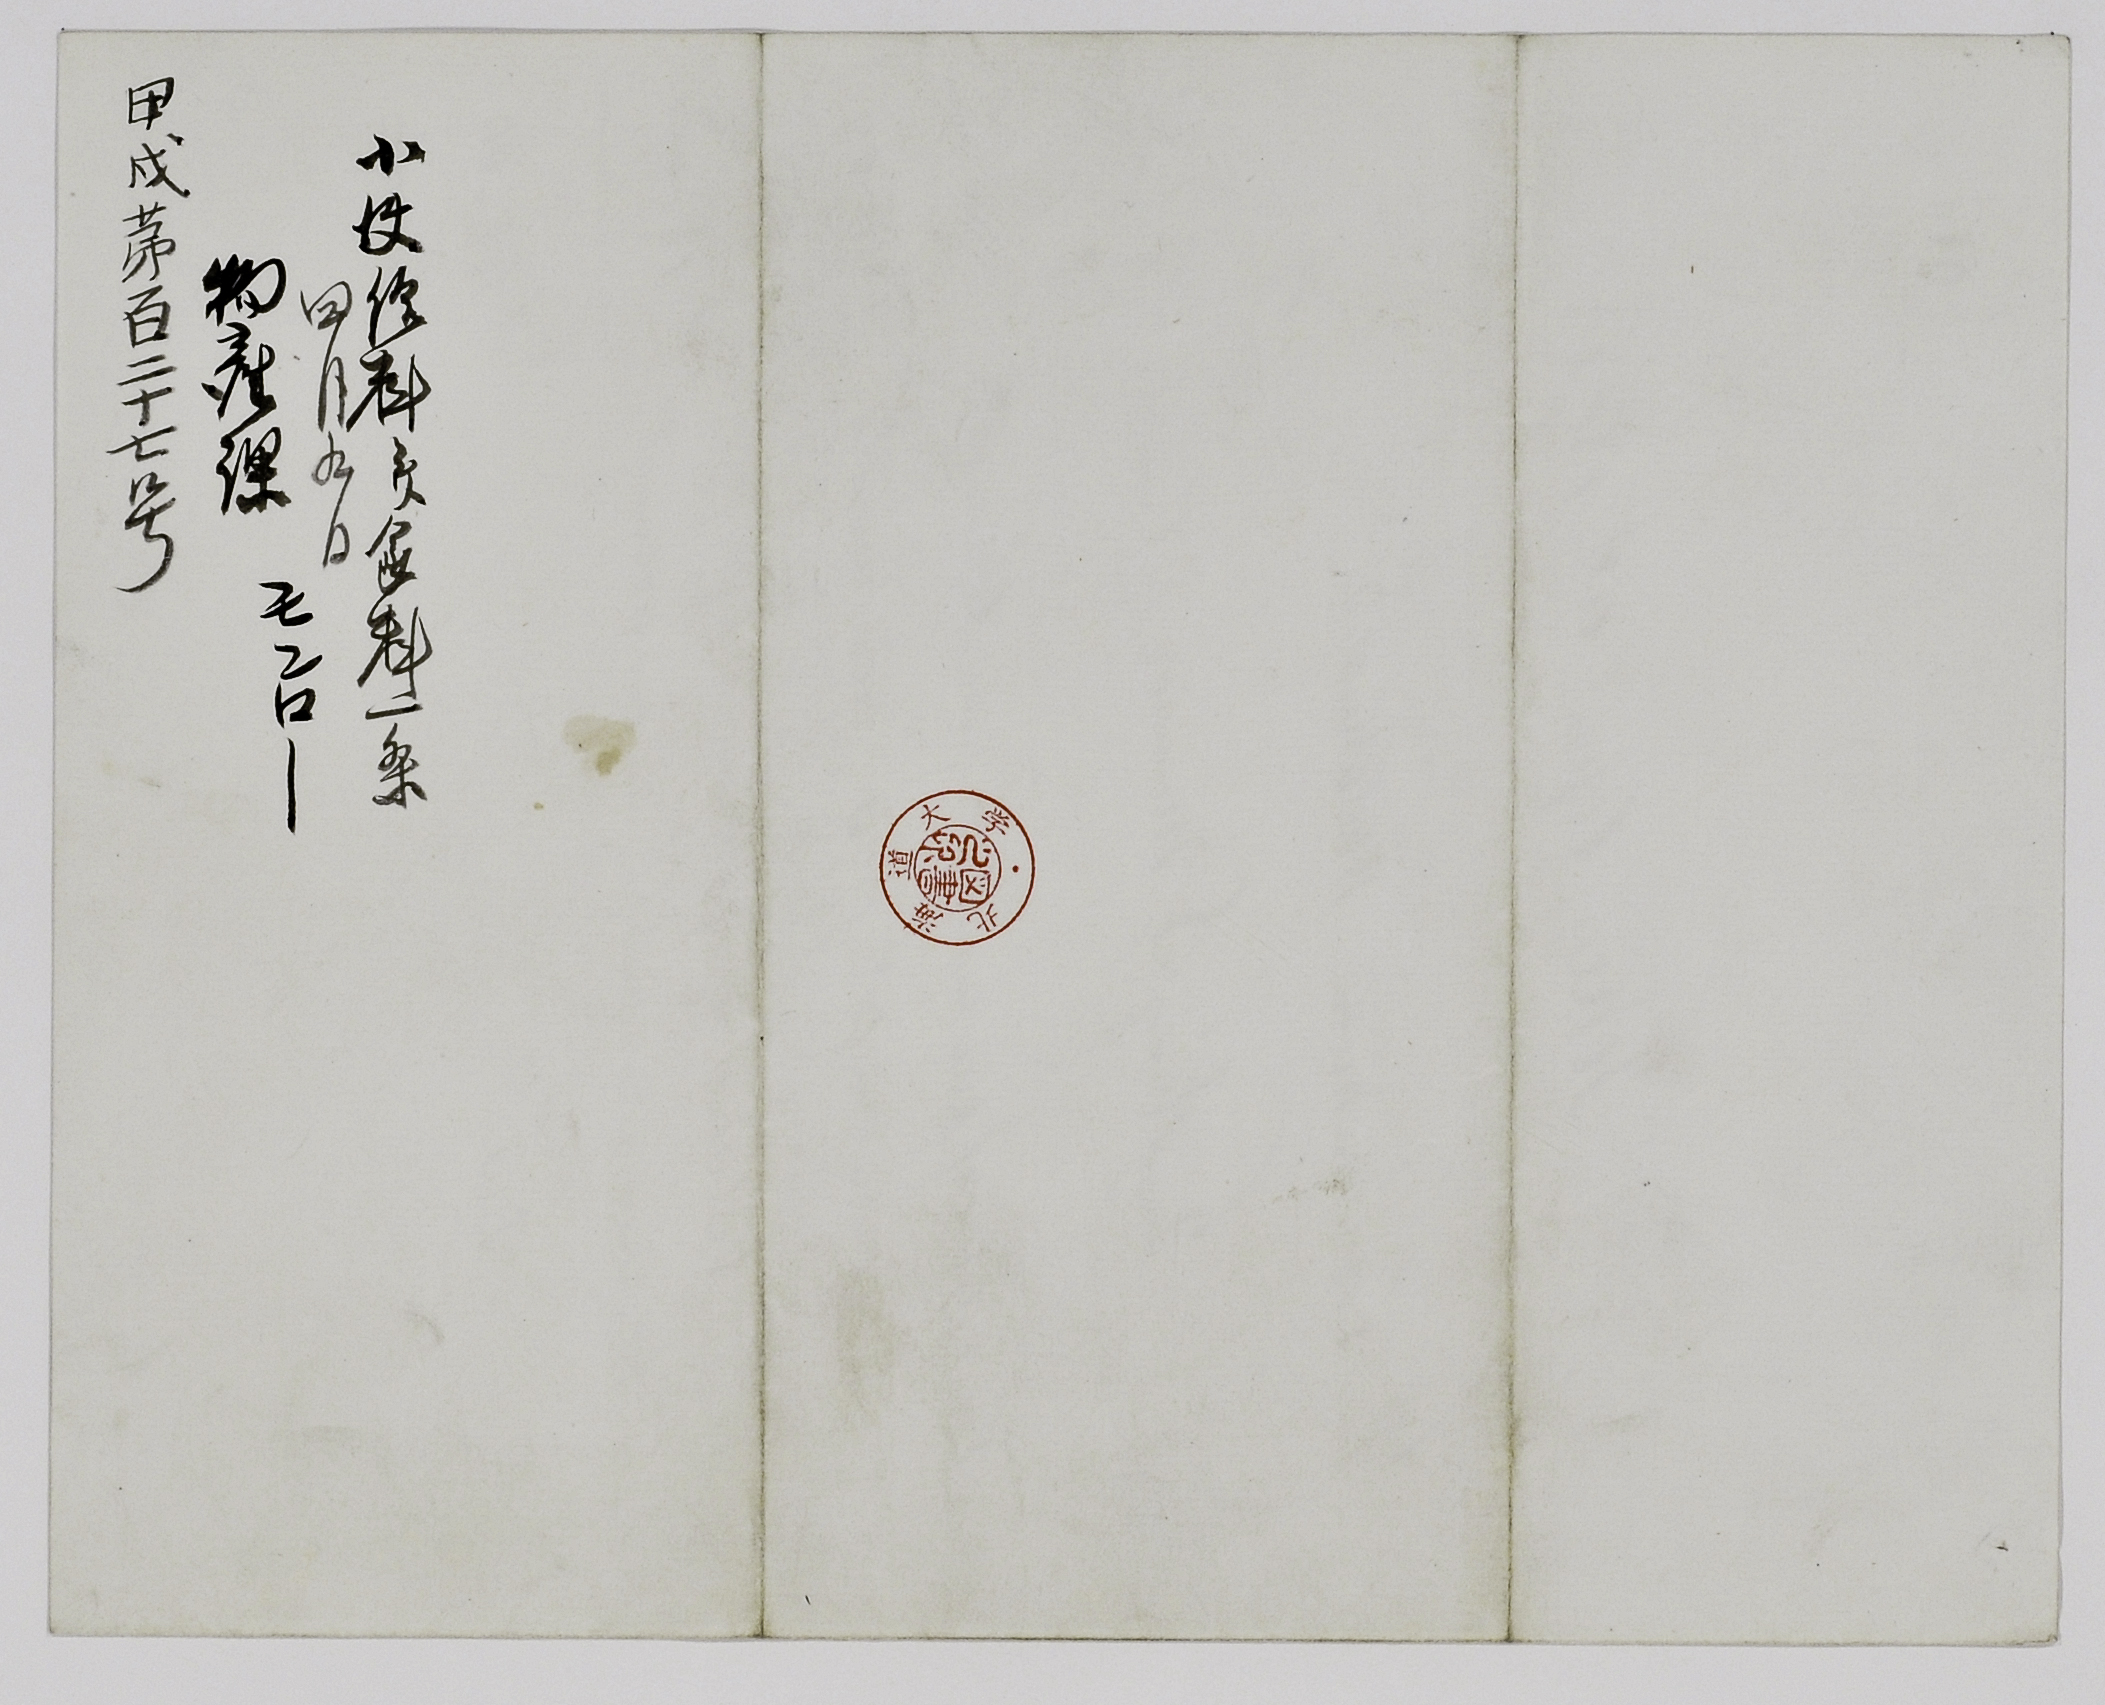 小使給料并食料一条
四月九日
物産課
モンロー
甲戌第百二十七号
北海道大学
図書